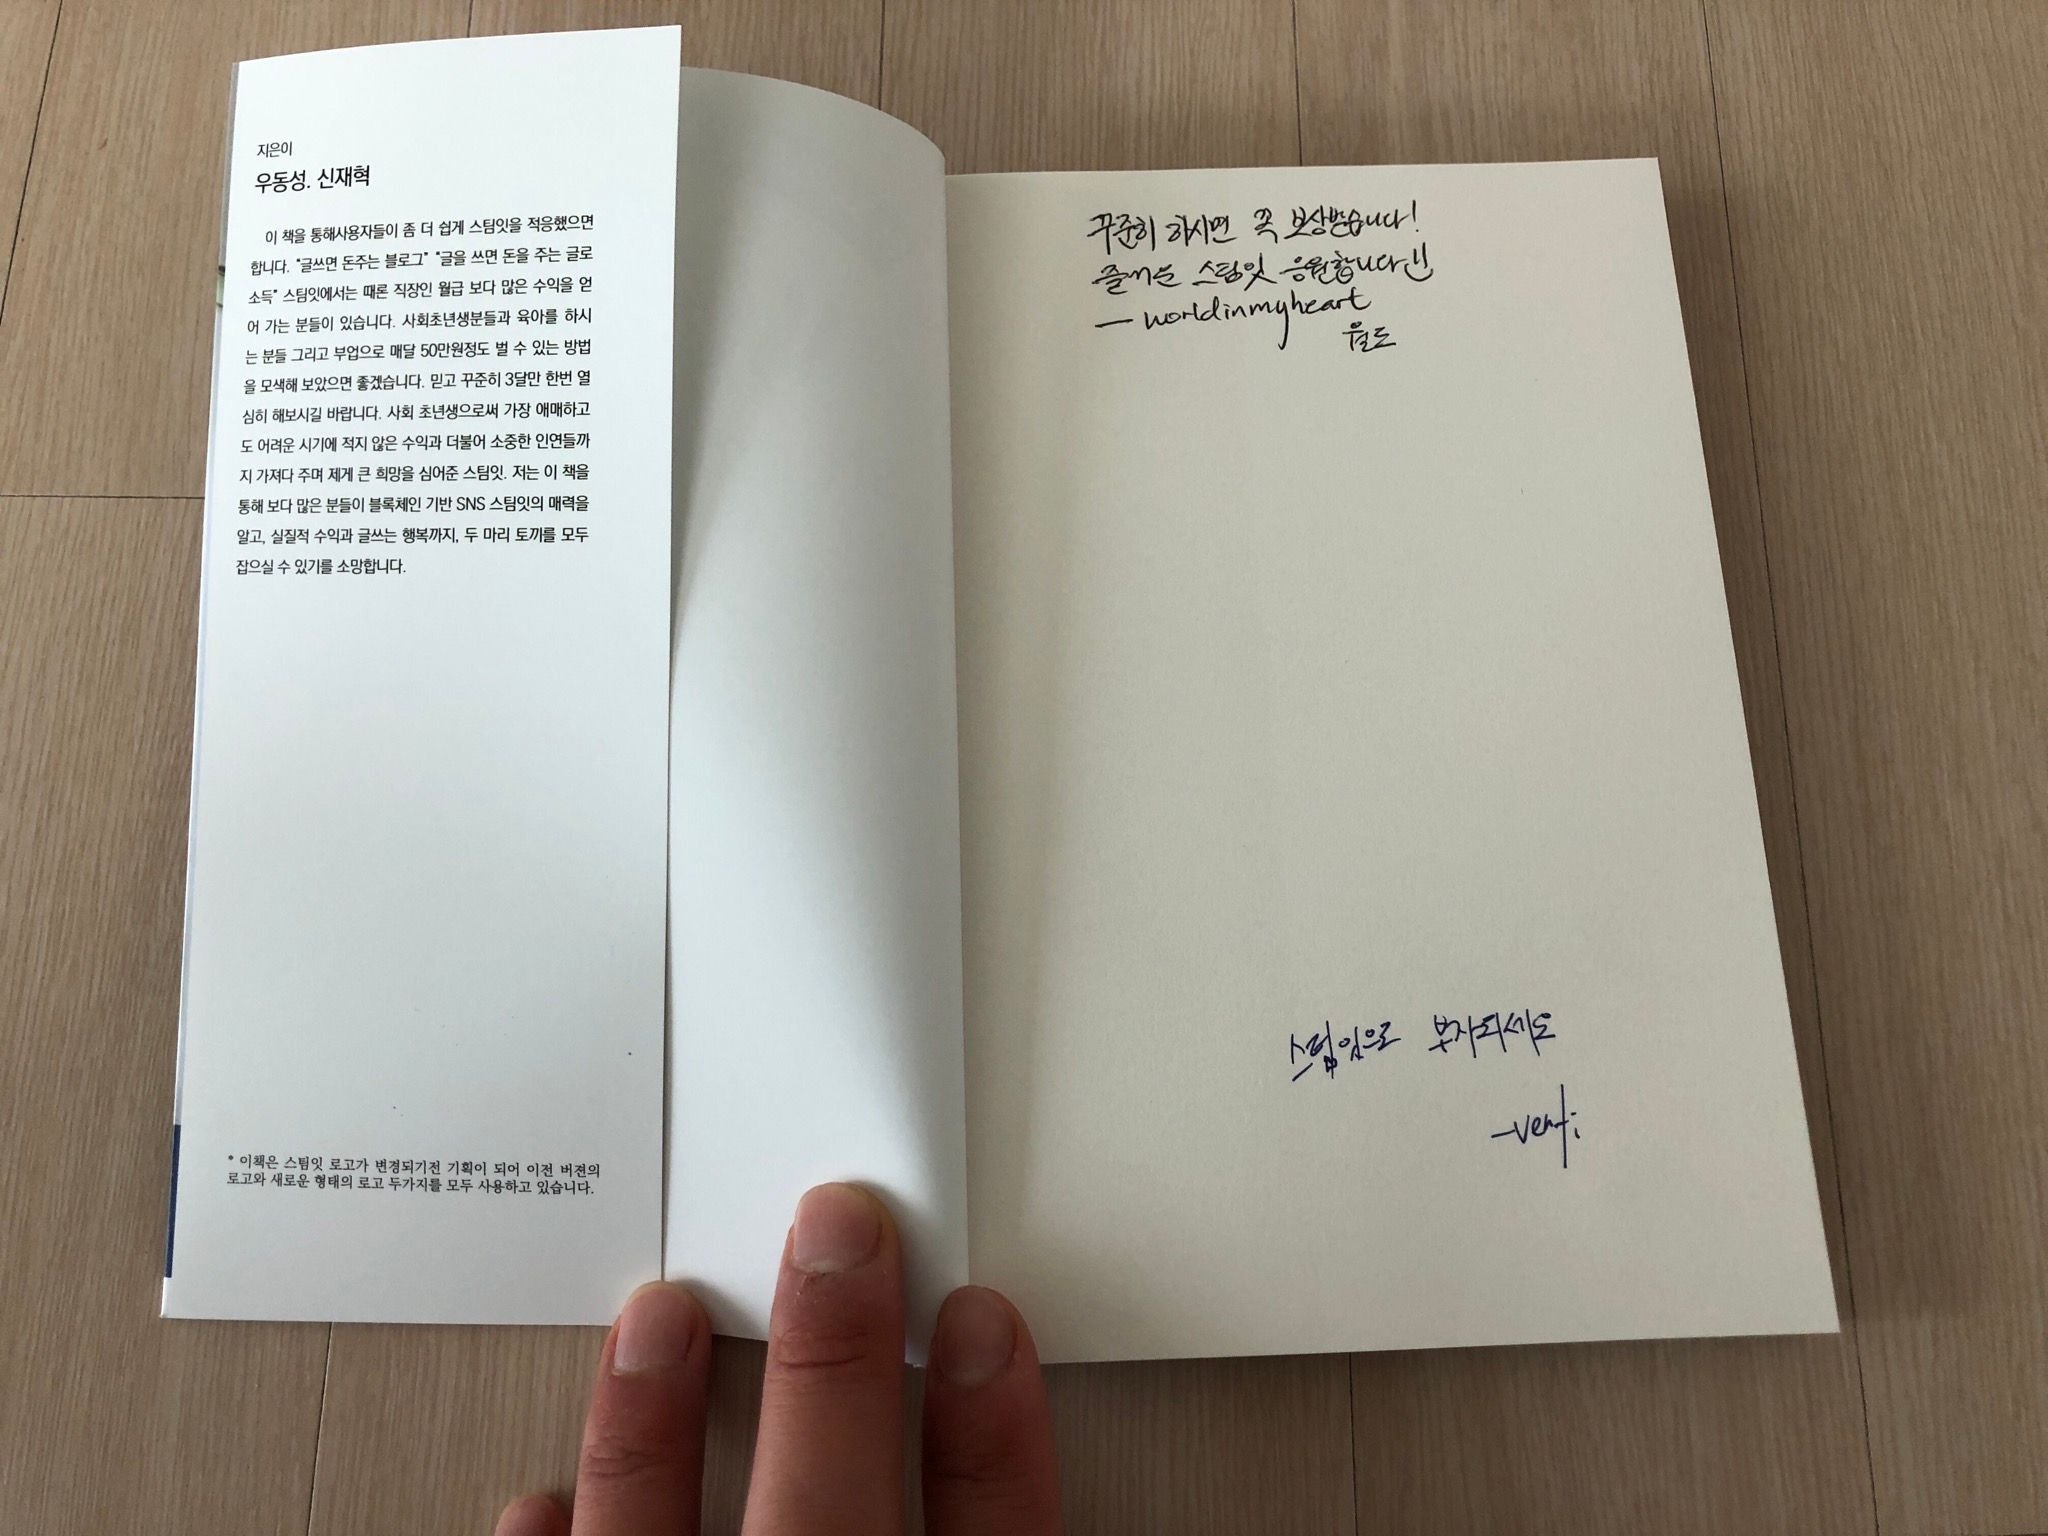 지은이
우동성. 신재혁
이 책을 통해사용자들이 좀 더 쉽게 스팀잇을 적응했으면
합니다. "글쓰면 돈주는 블로그" "글을 쓰면 돈을 주는 글로
소득" 스팀잇에서는 때론 직장인 월급 보다 많은 수익을 얻
어 가는 분들이 있습니다. 사회초년생분들과 육아를 하시
는 분들 그리고 부업으로 매달 50만원정도 벌 수 있는 방법
을 모색해 보았으면 좋겠습니다. 믿고 꾸준히 3달만 한번 열
심히 해보시길 바랍니다. 사회 초년생으로써 가장 애매하고
도 어려운 시기에 적지 않은 수익과 더불어 소중한 인연들까
지 가져다 주며 제게 큰 희망을 심어준 스팀잇. 저는 이 책을
통해 보다 많은 분들이 블록체인 기반 SNS 스팀잇의 매력을
알고, 실질적 수익과 글쓰는 행복까지, 두 마리 토끼를 모두
잡으실 수 있기를 소망합니다.
* 이책은 스팀잇 로고가 변경되기전 기획이 되어 이전 버젼의
로고와 새로운 형태의 로고 두가지를 모두 사용하고 있습니다.
꾸준히 하시면 꼭 보상받습니다!
즐거운 스팀잇 응원합니다!!
— worldinmyheart
월도
스팀잇으로 부자되세요
-venti